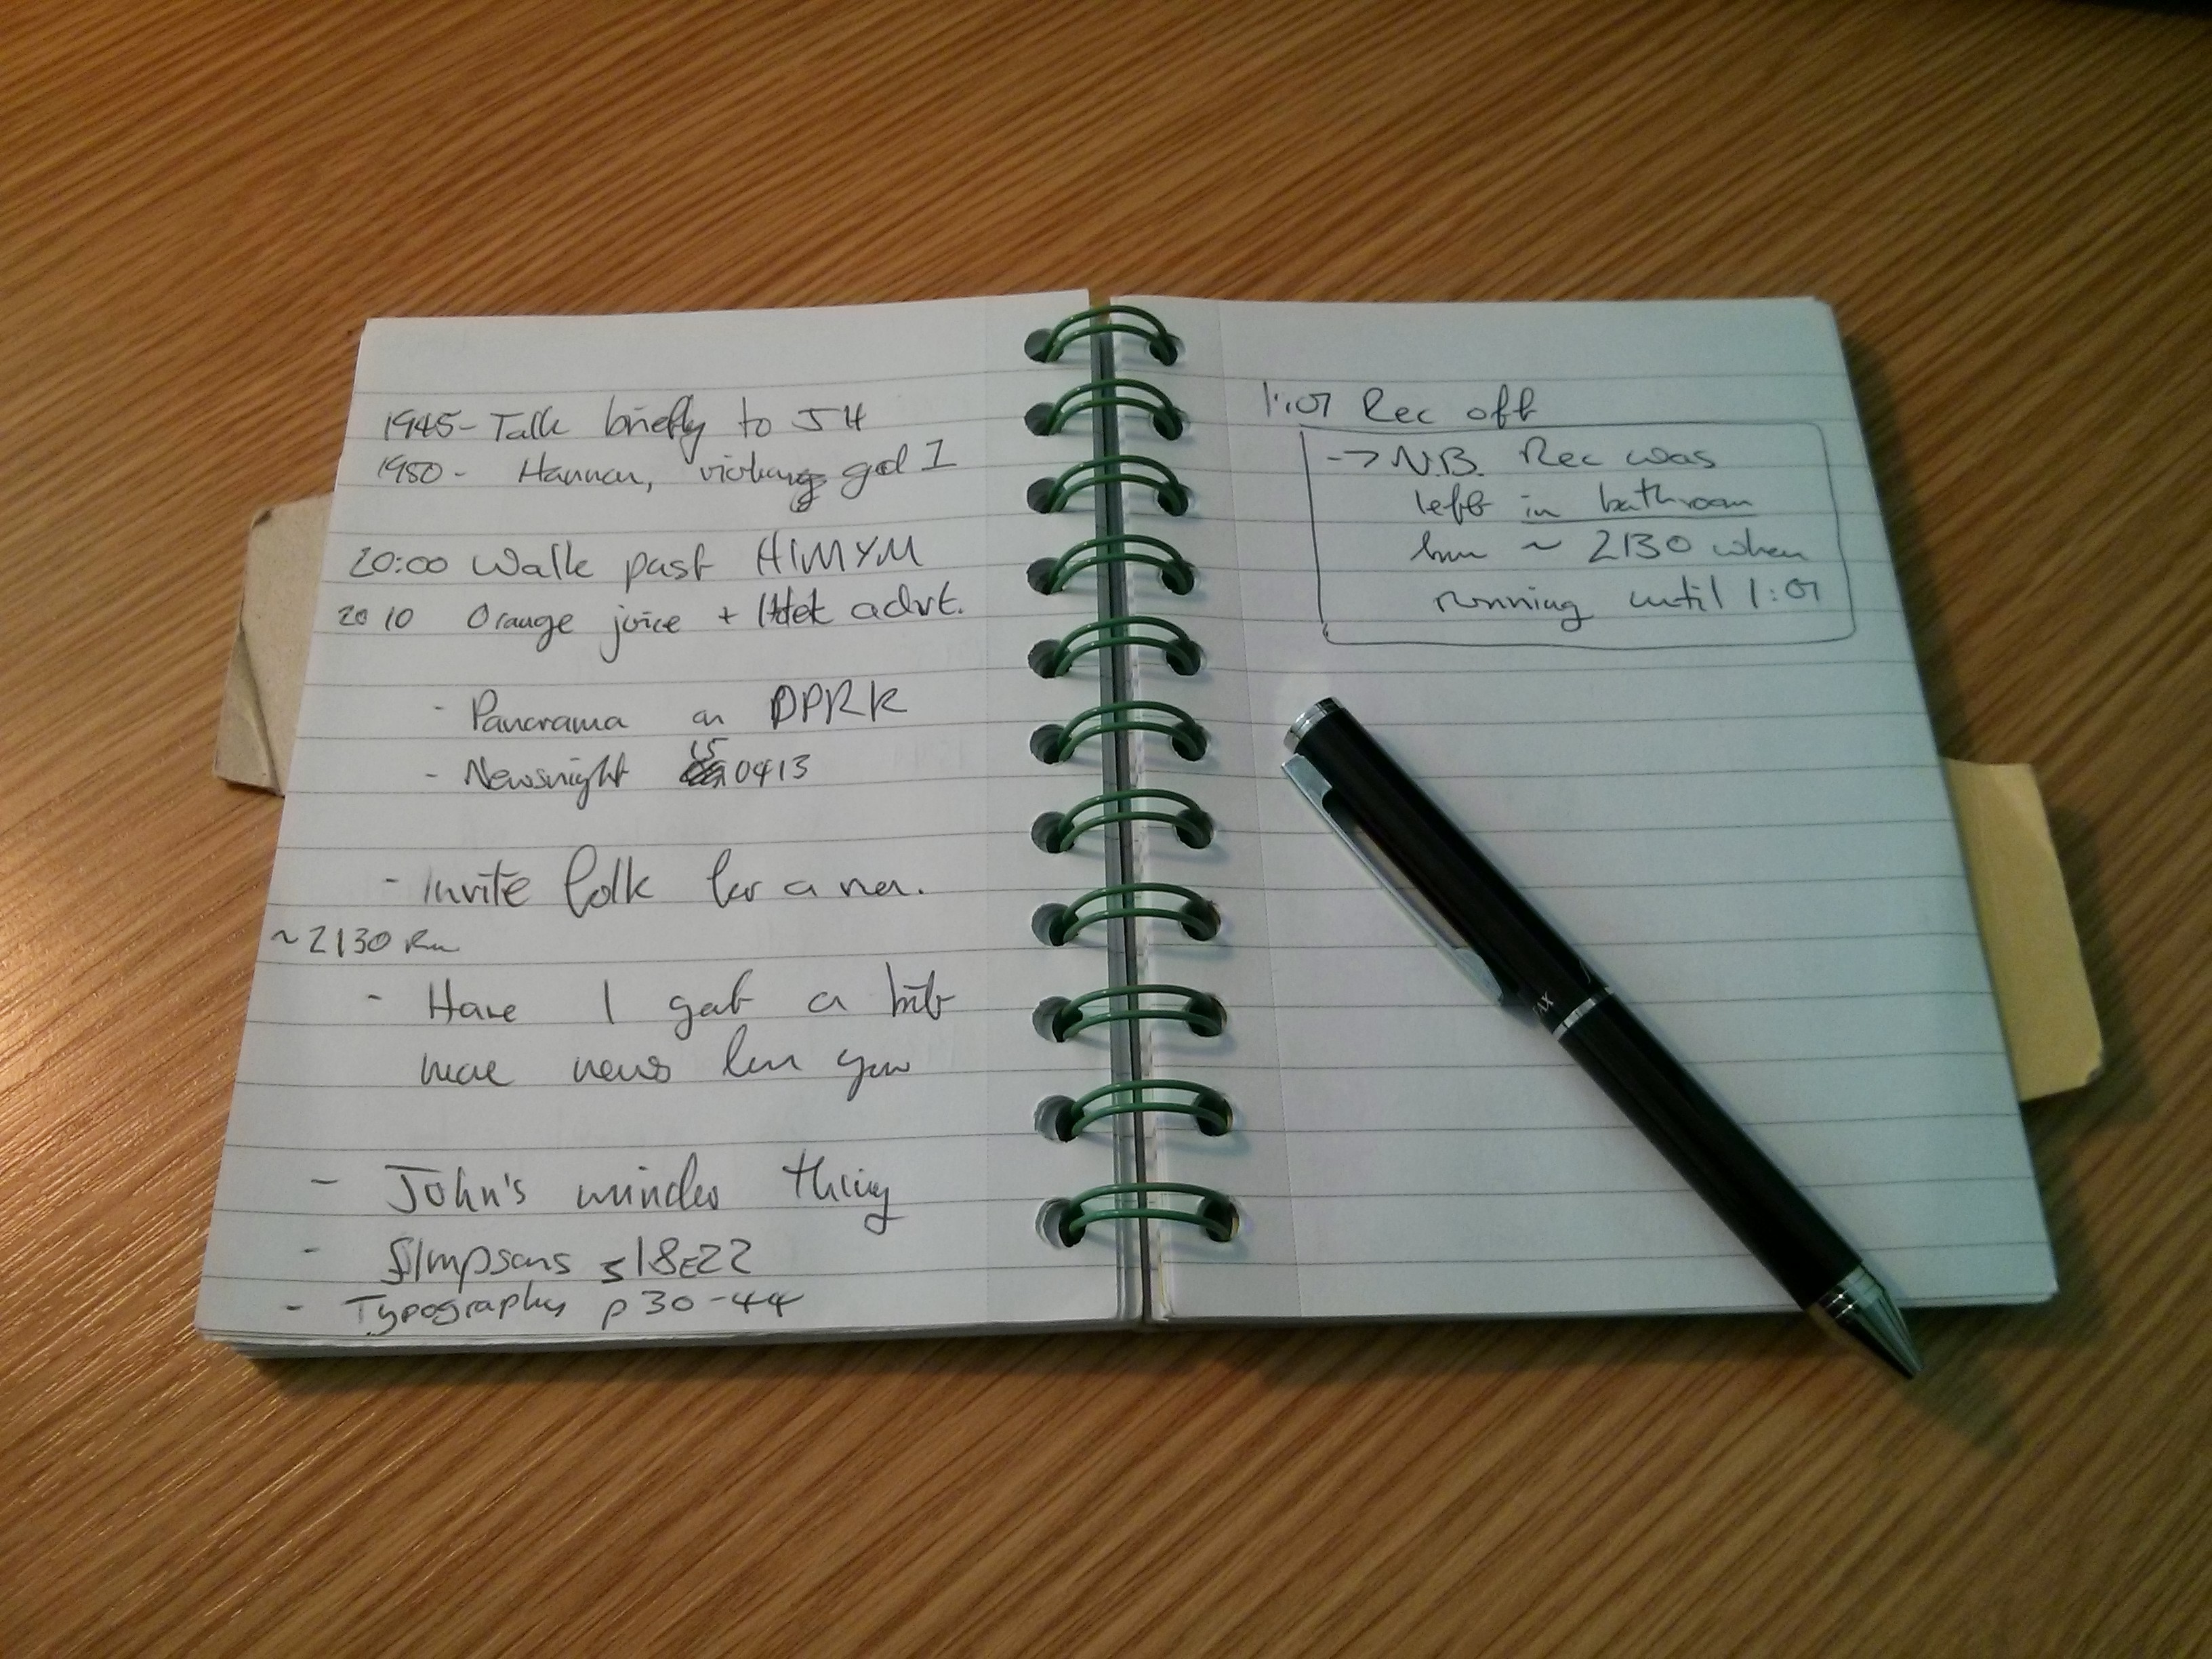 1945 - Talk briefly to JH
1950 - Hannah,
20:00 Walk past HIMYM
2010 Orange juice + advt.
- Panorama on DPRK
- Newsnight 150413
- Invite folk for a run.
~2130 Run
- Have I got a bit
more news for you
- John's minder thing
- Simpsons s18E22
- Typography p30-44
1:07 Rec off
-> N.B. Rec was
left in bathroom
from ~ 2130 when
running until 1:07